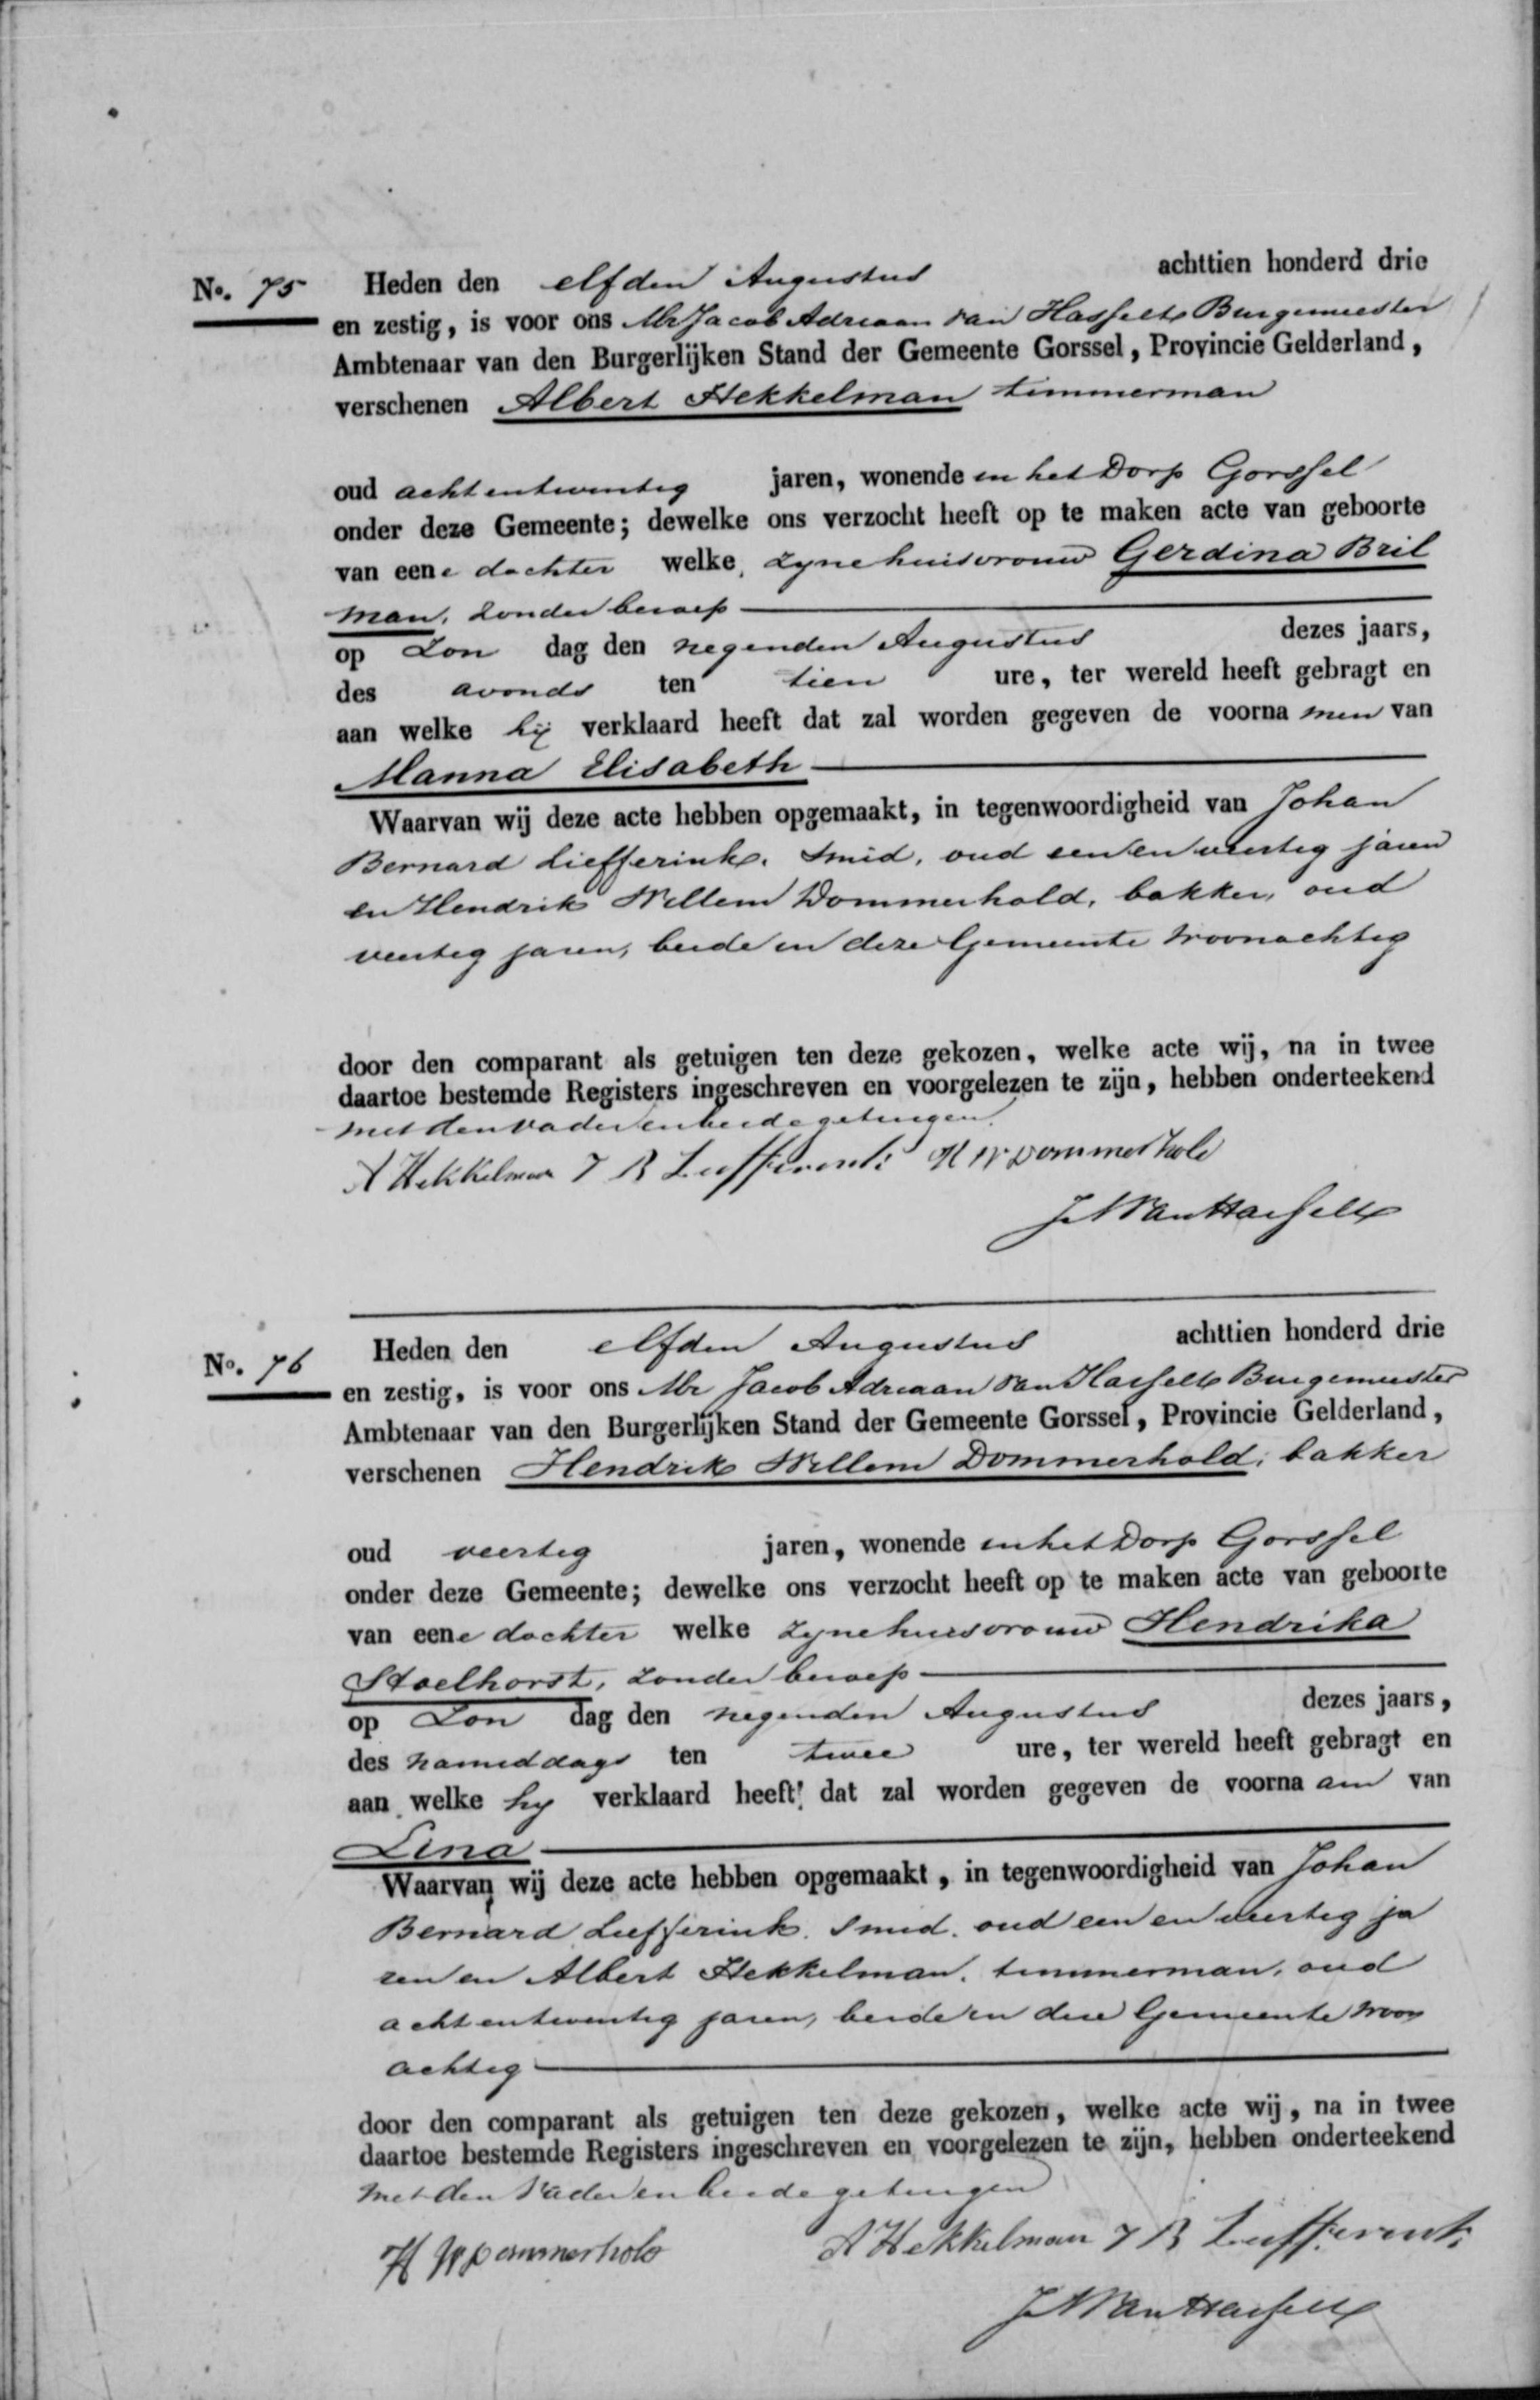 No. 75 Heden den elfden Augustus achttien honderd drie
en zestig, is voor ons Mr Jacob Adriaan van Hasselt Burgemeester
Ambtenaar van den Burgerlijken Stand der Gemeente Gorssel, Provincie Gelderland,
verschenen Albert Hekkelman timmerman
oud achtentwintig jaren, wonende in het Dorp Gorssel
onder deze Gemeente; dewelke ons verzocht heeft op te maken acte van geboorte
van eene dochter welke, zyne huisvrouw Gerdina Bril
man, zonder beroep
op Zon dag den negenden Augustus dezes jaars,
des avonds ten tien ure, ter wereld heeft gebragt en
aan welke hij verklaard heeft dat zal worden gegeven de voorna men van
Manna Elisabeth
Waarvan wij deze acte hebben opgemaakt, in tegenwoordigheid van Johan
Bernard Liefferink, Smid, oud een en veertig jaren
en Hendrik Willem Dommerhold, bakker, oud
veertig jaren, beide in deze Gemeente woonachtig
door den comparant als getuigen ten deze gekozen, welke acte wij, na in twee
daartoe bestemde Registers ingeschreven en voorgelezen te zijn, hebben onderteekend
met den vader en beide getuigen.
A Hekkelman J B Liefferink H W Dommerhold
J A van Hasselt
No. 76 Heden den elfden Augustus achttien honderd drie
en zestig, is voor ons Mr Jacob Adriaan van Hasselt Burgemeester
Ambtenaar van den Burgerlijken Stand der Gemeente Gorssel, Provincie Gelderland,
verschenen Hendrik Willem Dommerhold, bakker
oud veertig jaren, wonende in het Dorp Gorssel
onder deze Gemeente; dewelke ons verzocht heeft op te maken acte van geboorte
van eene dochter welke zyne huisvrouw Hendrika
Stoelhorst, zonder beroep
op Zon dag den negenden Augustus dezes jaars,
des namiddags ten twee ure, ter wereld heeft gebragt en
aan welke hy verklaard heeft dat zal worden gegeven de voorna am van
Lina
Waarvan wij deze acte hebben opgemaakt, in tegenwoordigheid van Johan
Bernard Liefferink, Smid, oud een en veertig ja
ren en Albert Hekkelman, timmerman, oud
achtentwintig jaren, beide in deze Gemeente woon
achtig
door den comparant als getuigen ten deze gekozen, welke acte wij, na in twee
daartoe bestemde Registers ingeschreven en voorgelezen te zijn, hebben onderteekend
met den Vader en beide getuigen
H W Dommerhold A Hekkelman J B Liefferink
J A van Hasselt